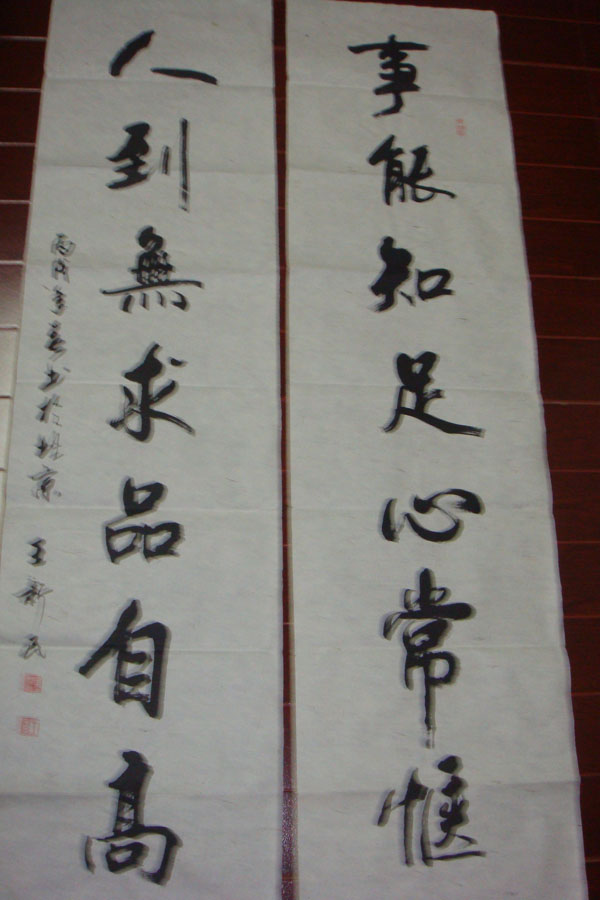 事能知足心常惬
人到無求品自高
丙戌年春书於北京 王新民